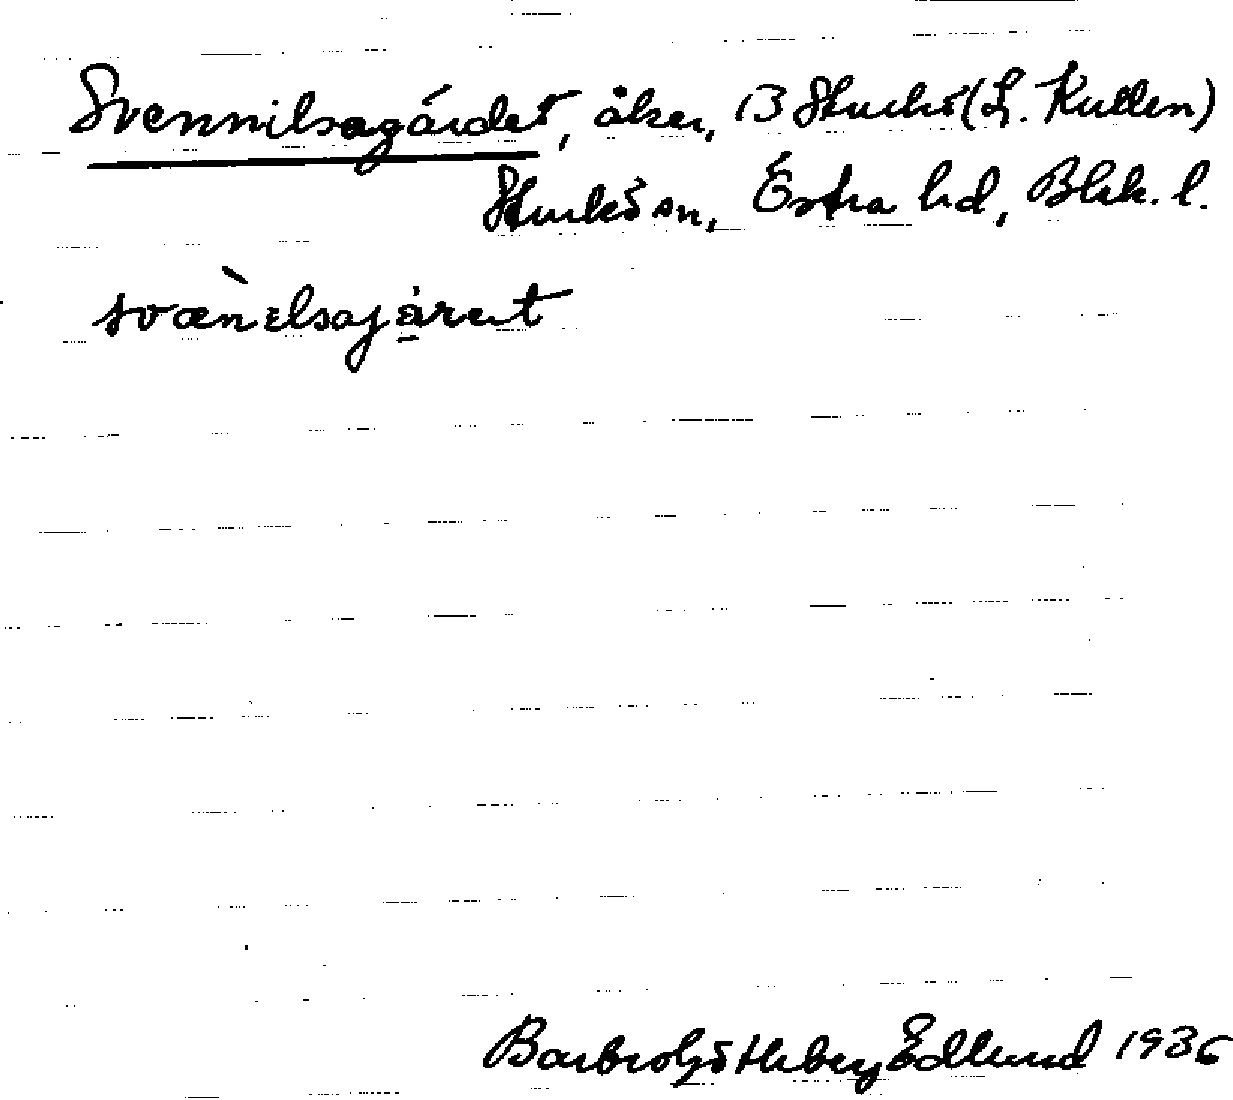 Svennilsagärdet, åker, 13 Sturkö (L. Kullen)
Sturkö sn, Östra hd, Blek. l.
svæǹelsajæret
Barbro Götheberg Edlund 1936